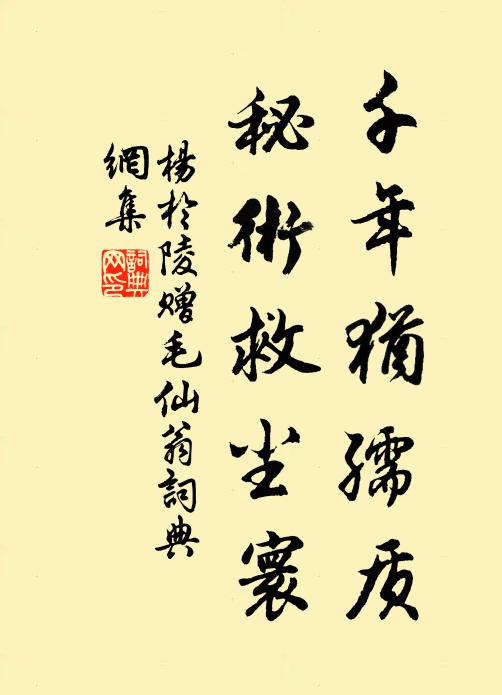 千年犹孺质
秘術救尘寰
楊於陵赠毛仙翁詞典
網集
詞典
网印